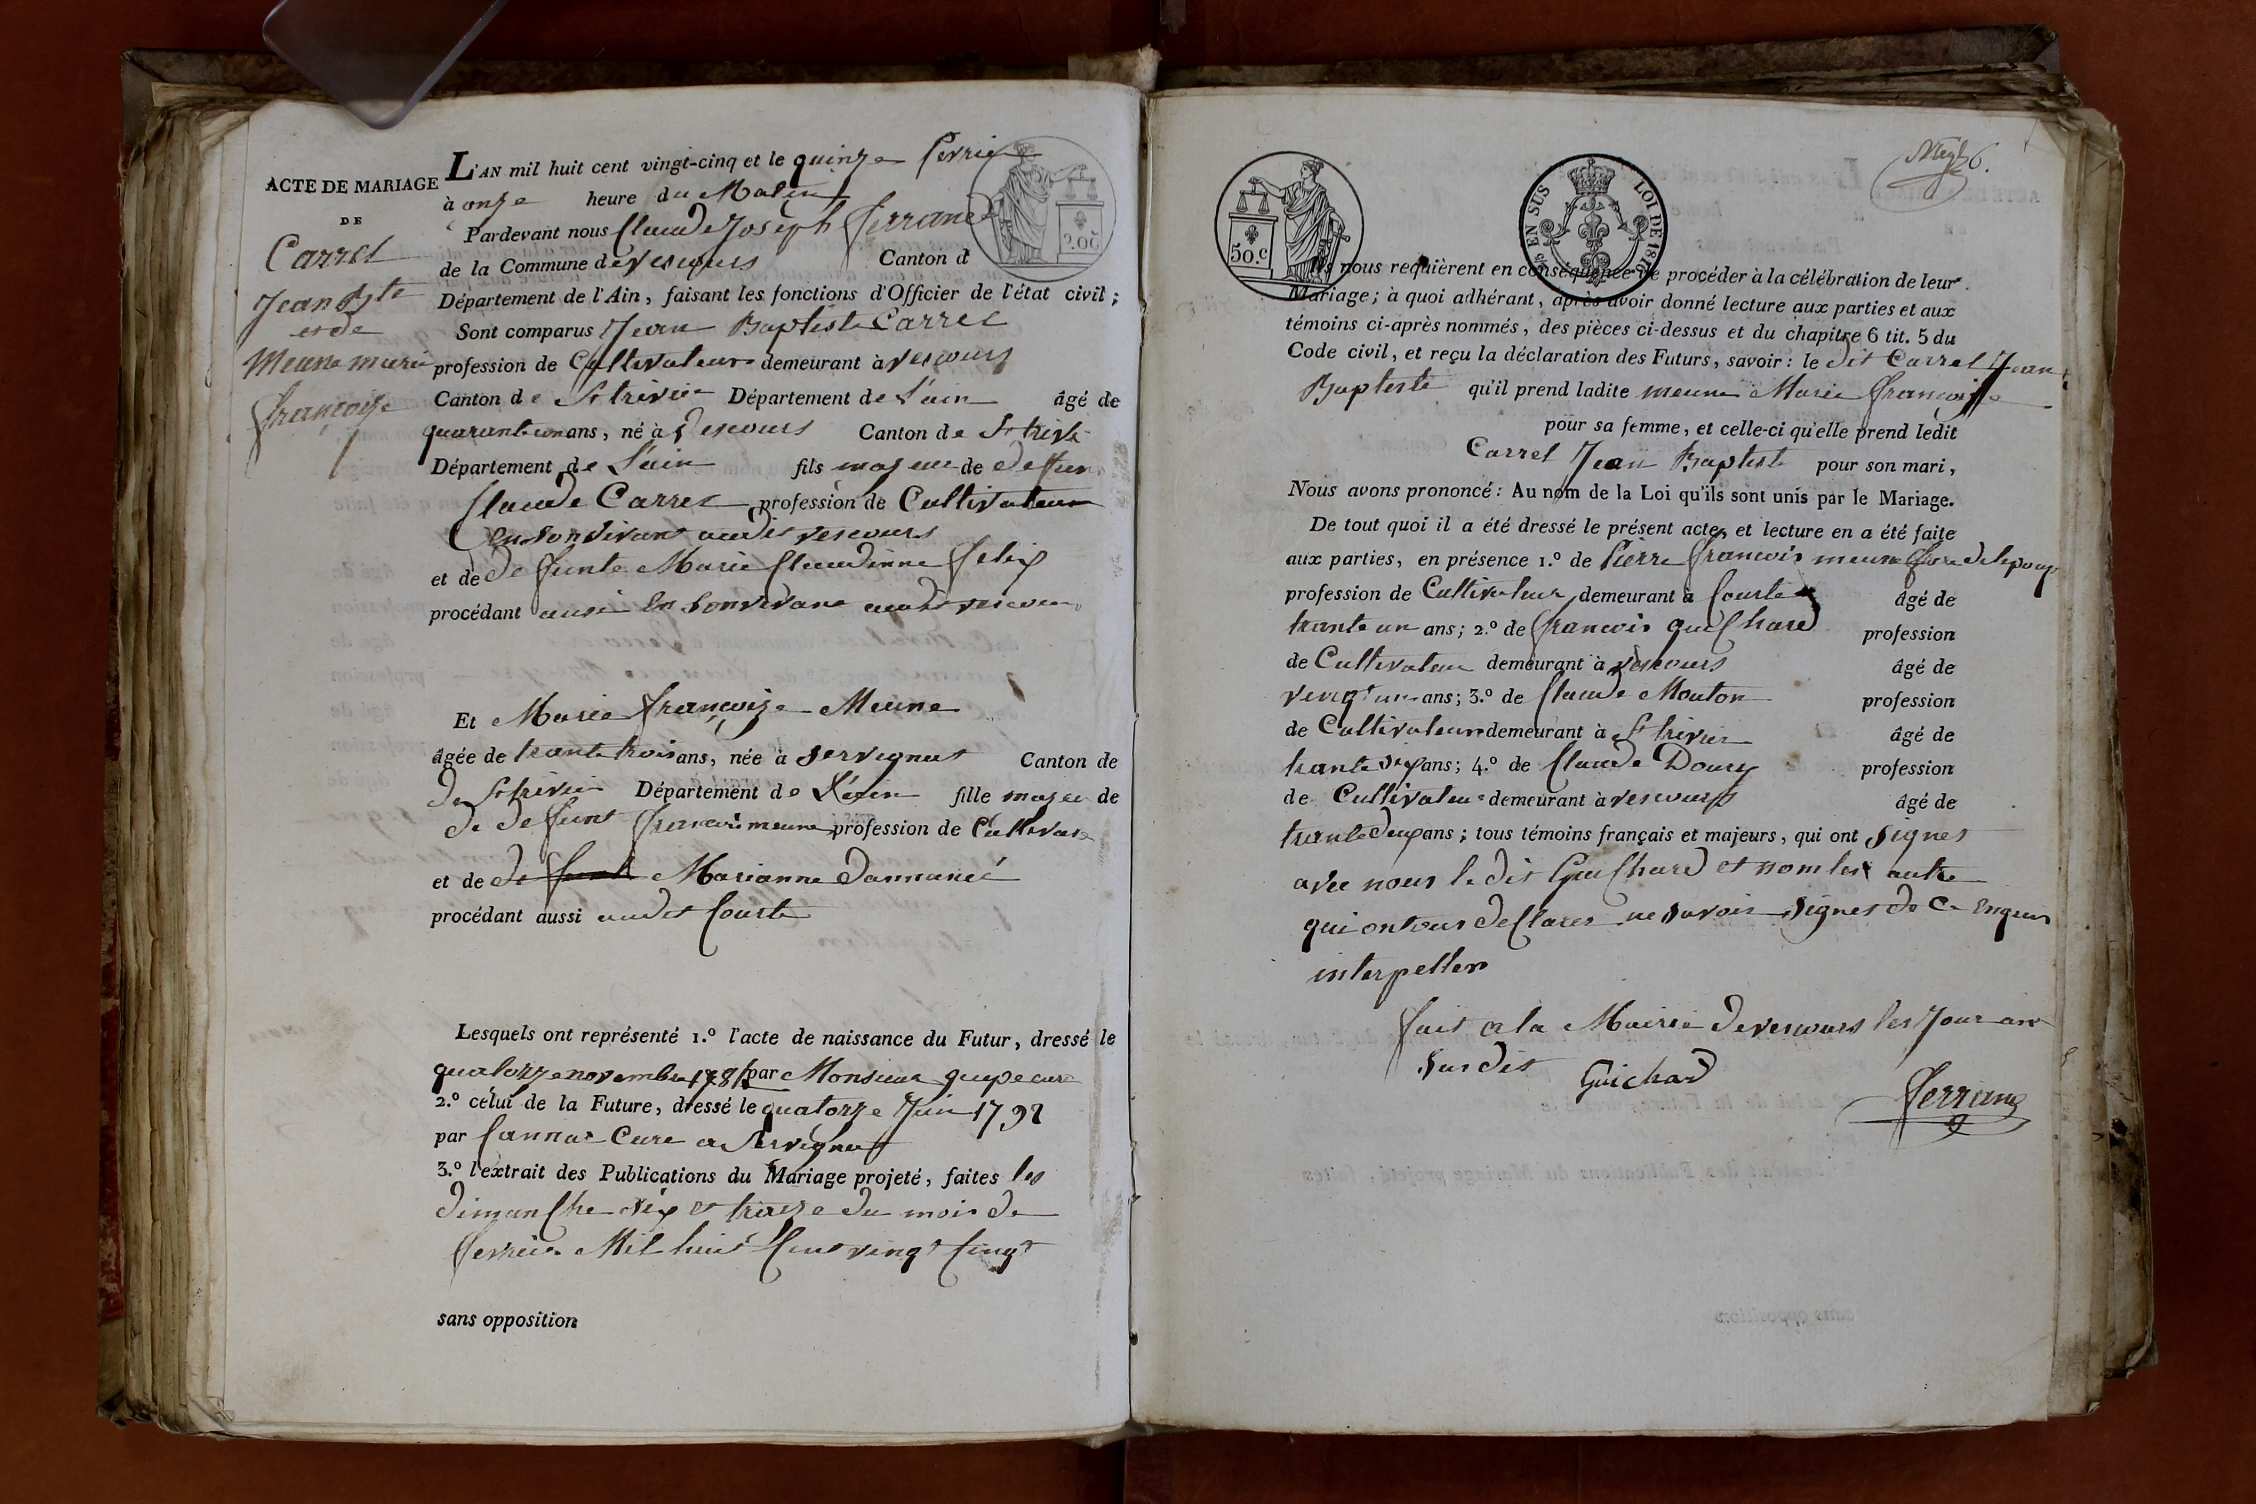 ACTE DE MARIAGE
DE
Carrel
Jean Bte
et de
Meune marie
françoise
L'AN mil huit cent vingt-cinq et le quinze fevrie
à onze heure du Matin
Pardevant nous Claude Joseph ferrand
de la Commune de Vescours Canton d
Département de l'Ain, faisant les fonctions d'Officier de l'état civil;
Sont comparus Jean Baptiste Carrel
profession de Cultivateur demeurant à vescours
Canton de St trivier Département de L'ain âgé de
quarante un ans, né à Vescours Canton de St trivi
Département de L'ain fils majeur de defun
Claude Carrel profession de Cultivateur
En Son vivant audit vescours
et de de funte Marie Claudinne felix
procédant aussi En Sonvivant audit vescour
Et Marie françoise Meune
âgée de trante trois ans, née à Servignat Canton de
de St trivier Département de L'ain fille majeu de
de de funt francois meune profession de Cultivat
et de de funte Marianne Dannancé
procédant aussi audit Courte
Lesquels ont représenté 1.º l'acte de naissance du Futur, dressé le
quatorze novembre par Monsieur cure
2.º celui de la Future, dressé le quatorze Juin 1791
par Cannac Cure a Servignat
3.º l'extrait des Publications du Mariage projeté, faites les
dimanche Six et treize du mois de
fevrier Mil huit Cent vingt Cinqt
sans opposition
6.
50.c
20c
EN SUS LOI DE 1816
Ils nous requièrent en conséquence de procéder à la célébration de leur
Mariage; à quoi adhérant, après avoir donné lecture aux parties et aux
témoins ci-après nommés, des pièces ci-dessus et du chapitre 6 tit. 5 du
Code civil, et reçu la déclaration des Futurs, savoir: le dit Carrel Jean
Baptiste qu'il prend ladite meune Marie françoise
pour sa femme, et celle-ci qu'elle prend ledit
Carrel Jean Baptiste pour son mari,
Nous avons prononcé: Au nom de la Loi qu'ils sont unis par le Mariage.
De tout quoi il a été dressé le présent acte, et lecture en a été faite
aux parties, en présence 1.º de Pierre francois meune frere de lepouse
profession de Cultivateur demeurant à Courte âgé de
trante un ans; 2.º de francois guichard profession
de Cultivateur demeurant à vescours âgé de
vingt un ans; 3.º de Claude Mouton profession
de Cultivateur demeurant à St trivier âgé de
trante Six ans; 4.º de Claude Doury profession
de Cultivateur demeurant à vescours âgé de
trante deux ans; tous témoins français et majeurs, qui ont Signes
avec nous le dit Guichard et nom les autre
qui ont tous declares ne Savoir Signes de Ce Enquis
interpellers
fait a la Mairie de vescours les Jour an
Sus dit
Guichard
ferrand